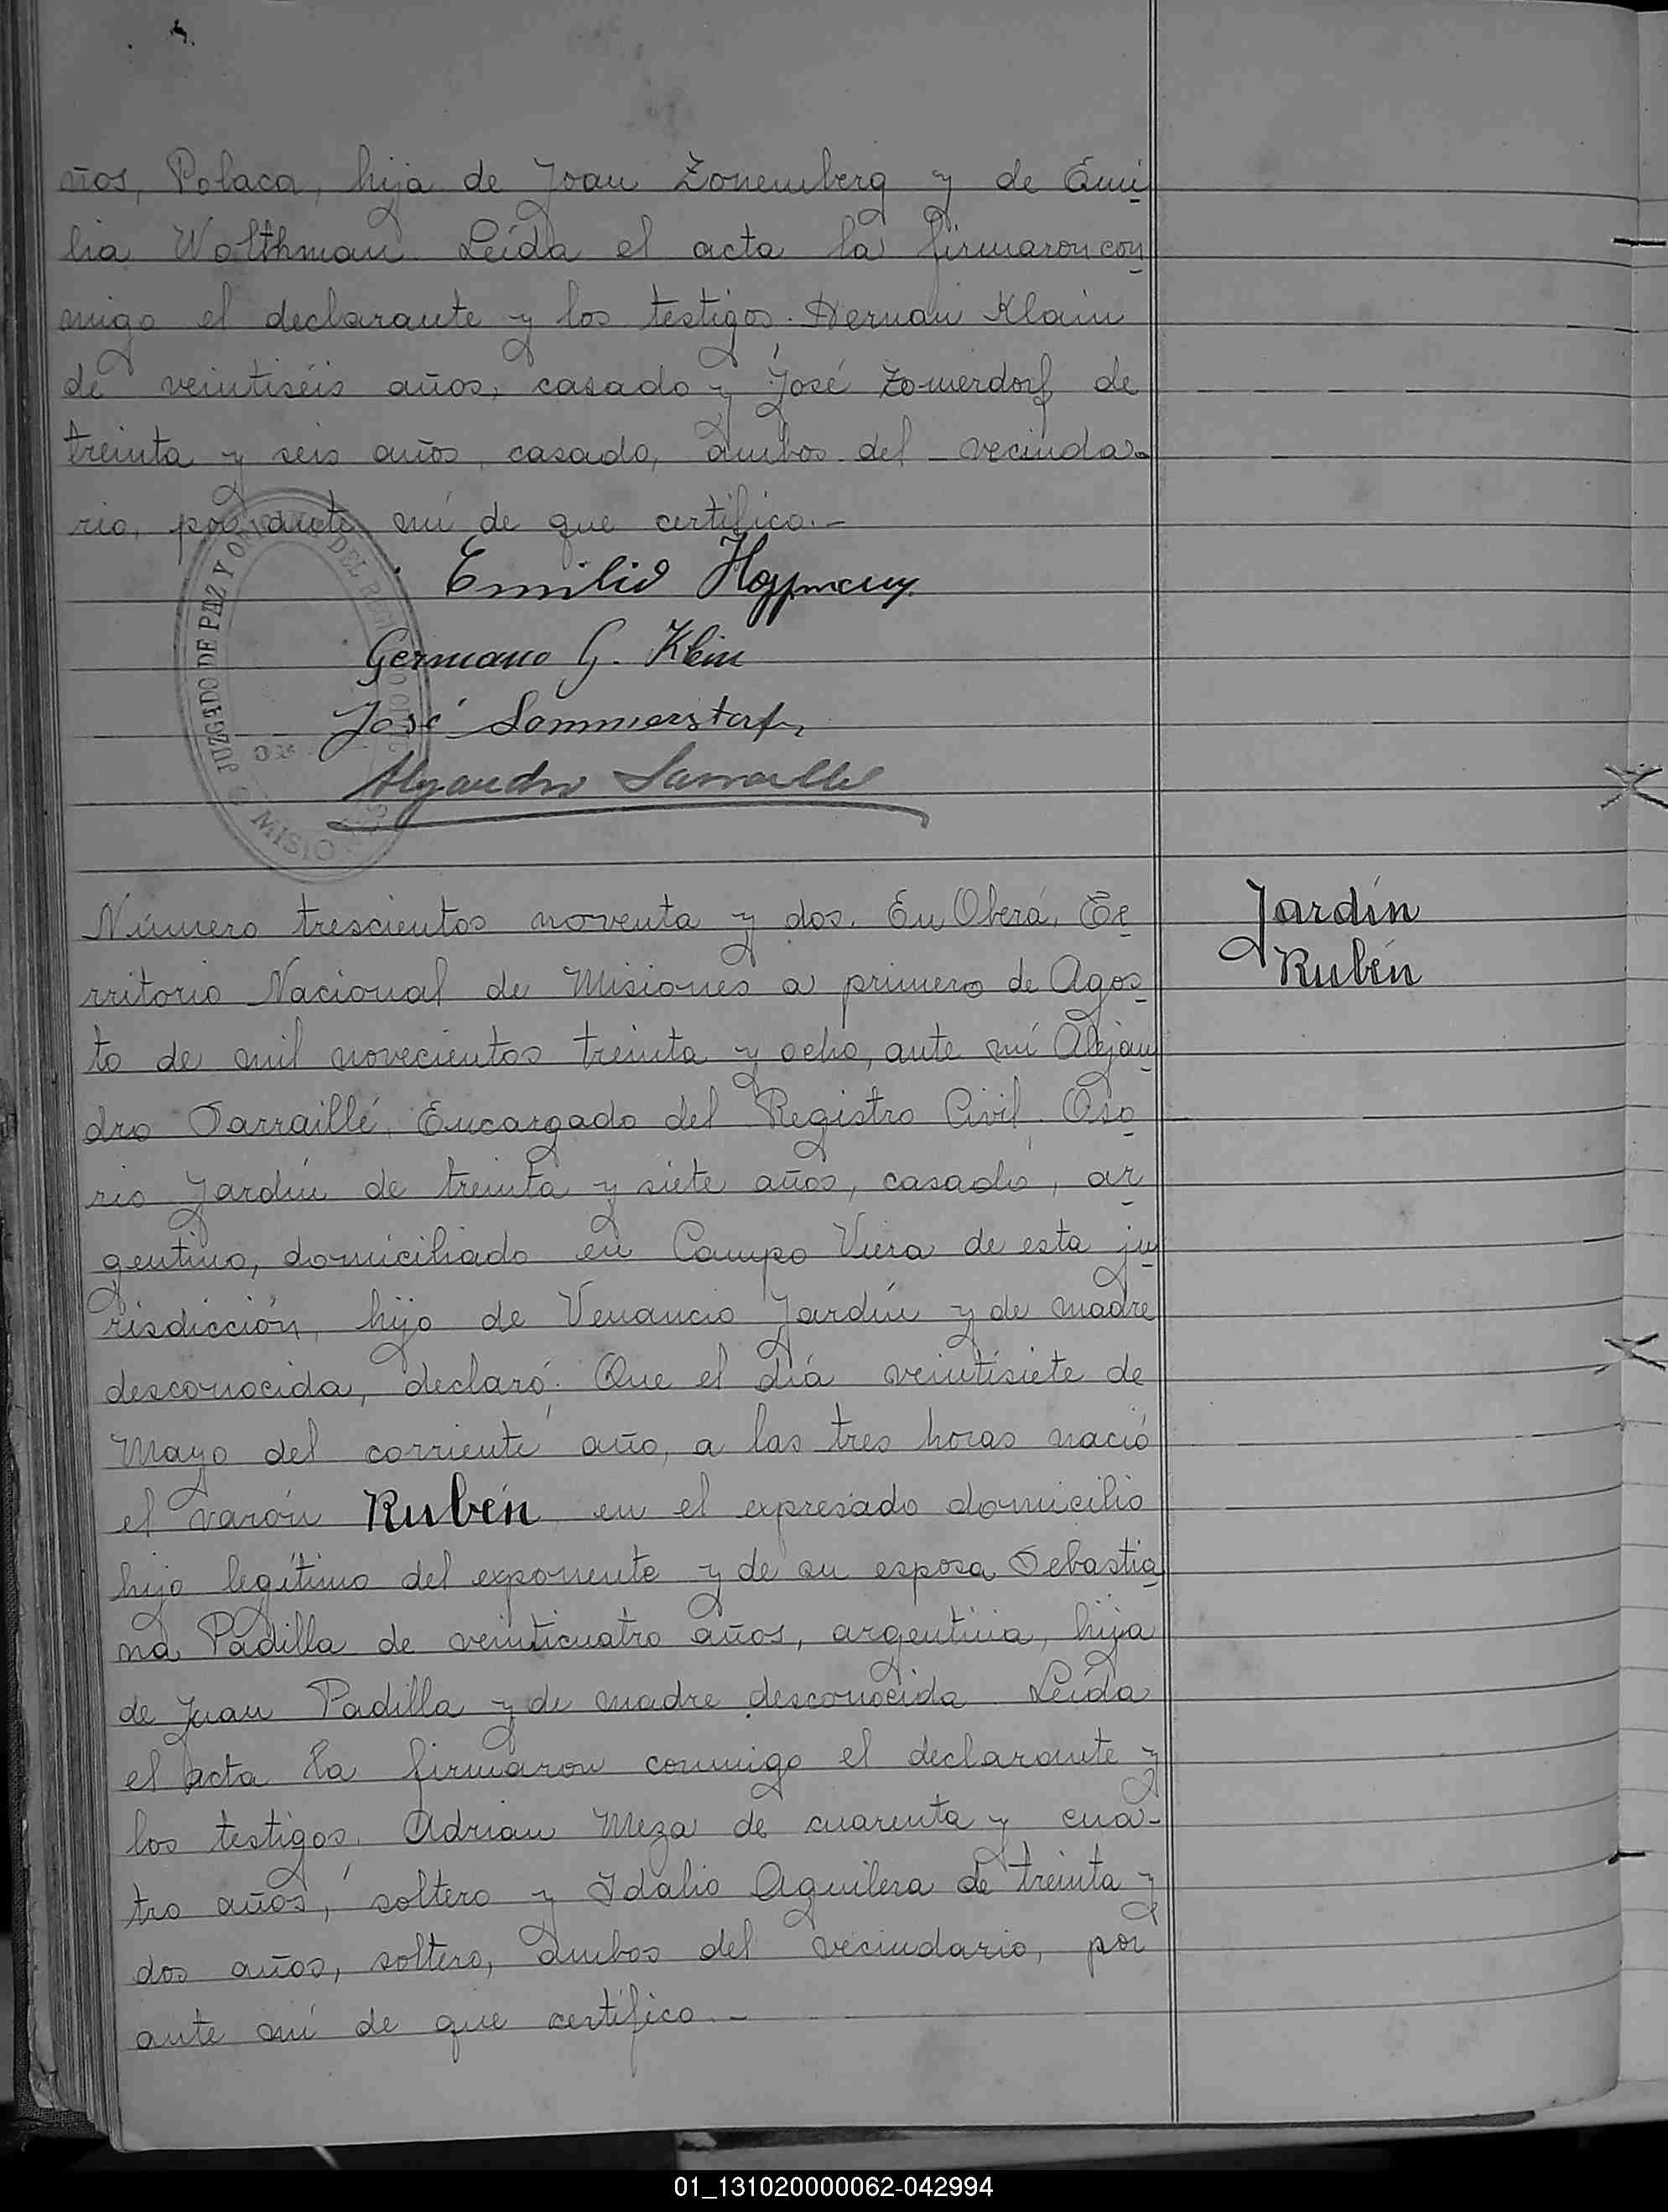 ños, Polaca, hija de Joan Zonemberg y de Emi
lia Wolthman. Leída el acta la firmaron con
migo el declarante y los testigos. Hernan Klain
de veintiséis años, casado y José Zomerdorf de
treinta y seis años, casado, ambos del vecinda
rio, por ante mí de que certifico.-
Emilio Hoffmann
Germano G. Klein
José Sommerstorf
Alejandro Sarraillé
JUZGADO DE PAZ Y
DEL
MISIO
Número trescientos noventa y dos. En Oberá, Te
rritorio Nacional de Misiones a primero de Agos
to de mil novecientos treinta y ocho, ante mí Alejan
dro Sarraillé, Encargado del Registro Civil. Oso
rio Jardín de treinta y siete años, casado, ar
gentino, domiciliado en Campo Viera de esta ju
risdicción, hijo de Venancio Jardín y de madre
desconocida, declaró: Que el día veintisiete de
Mayo del corriente año, a las tres horas nació
el varón Rubén en el expresado domicilio
hijo legítimo del exponente y de su esposa Sebastia
na Padilla de veinticuatro años, argentina, hija
de Juan Padilla y de madre desconocida. Leída
el acta la firmaron conmigo el declarante y
los testigos. Adrian Meza de cuarenta y cua-
tro años, soltero y Idalio Aguilera de treinta y
dos años, soltero, ambos del vecindario, por
ante mí de que certifico.-
Jardín
Rubén
01_131020000062-042994